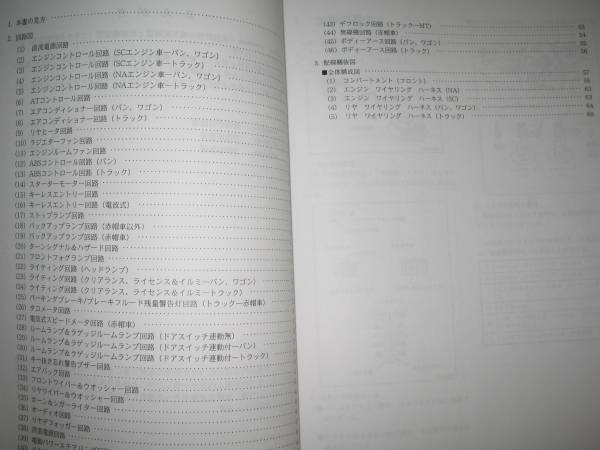 1. 本書の見方
2. 回路図
(1) 直流電源回路
(2) エンジンコントロール回路（SCエンジン車ーバン、ワゴン）
(3) エンジンコントロール回路（SCエンジン車ートラック）
(4) エンジンコントロール回路（NAエンジン車ーバン、ワゴン）
(5) エンジンコントロール回路（NAエンジン車ートラック）
(6) ATコントロール回路
(7) エアコンディショナー回路（バン、ワゴン）
(8) エアコンディショナー回路（トラック）
(9) リヤヒータ回路
(10) ラジエターファン回路
(11) エンジンルームファン回路
(12) ABSコントロール回路（バン）
(13) ABSコントロール回路（トラック）
(14) スターターモーター回路
(15) キーレスエントリー回路
(16) キーレスエントリー回路（電波式）
(17) ストップランプ回路
(18) バックアップランプ回路（赤帽車以外）
(19) バックアップランプ回路（赤帽車）
(20) ターンシグナル＆ハザード回路
(21) フロントフォグランプ回路
(22) ライティング回路（ヘッドランプ）
(23) ライティング回路（クリアランス、ライセンス＆イルミーバン、ワゴン）
(24) ライティング回路（クリアランス、ライセンス＆イルミートラック）
(25) パーキングブレーキ/ブレーキフルード残量警告灯回路（トラックー赤帽車）
(26) タコメータ回路
(27) 電気式スピードメータ回路（赤帽車）
(28) ルームランプ＆ラゲッジルームランプ回路（ドアスイッチ連動無）
(29) ルームランプ＆ラゲッジルームランプ回路（ドアスイッチ連動付ーバン）
(30) ルームランプ＆ラゲッジルームランプ回路（ドアスイッチ連動付ートラック）
(31) キー抜き忘れ警告ブザー回路
(32) エアバック回路
(33) フロントワイパー＆ウオッシャー回路
(34) リヤワイパー＆ウオッシャー回路
(35) ホーン＆シガーライター回路
(36) オーディオ回路
(37) リヤデフォッガー回路
(39) 電動パワーステアリン
(43) デフロック回路（トラックーMT） 53
(44) 無線機回路（赤帽車） 54
(45) ボディーアース回路（バン、ワゴン） 55
(46) ボディーアース回路（トラック） 56
3. 配線艤装図
■全体構成図 57
(1) コンパートメント（フロント） 59
(2) エンジン ワイヤリング ハーネス（NA） 62
(3) エンジン ワイヤリング ハーネス（SC） 63
(4) リヤ ワイヤリング ハーネス（バン、ワゴン） 64
(5) リヤ ワイヤリング ハーネス（トラック） 68